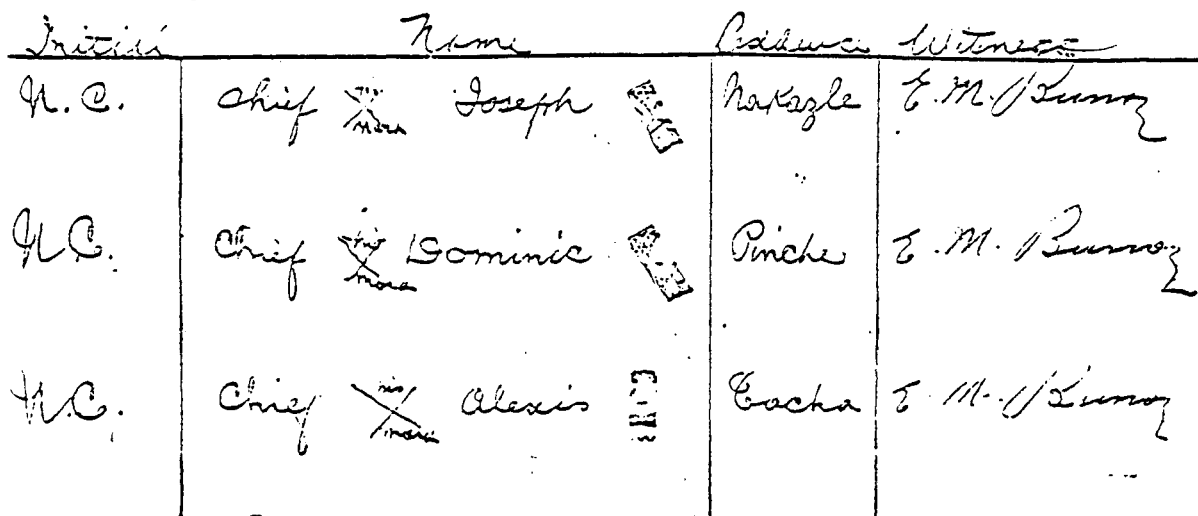 Initial Name Address Witness
N.C. Chief his X mark Joseph Nakazle E. M. Bunoz
N.C. Chief his X mark Dominic Pinche E. M. Bunoz
N.C. Chief his X mark Alexis Tacha E. M. Bunoz